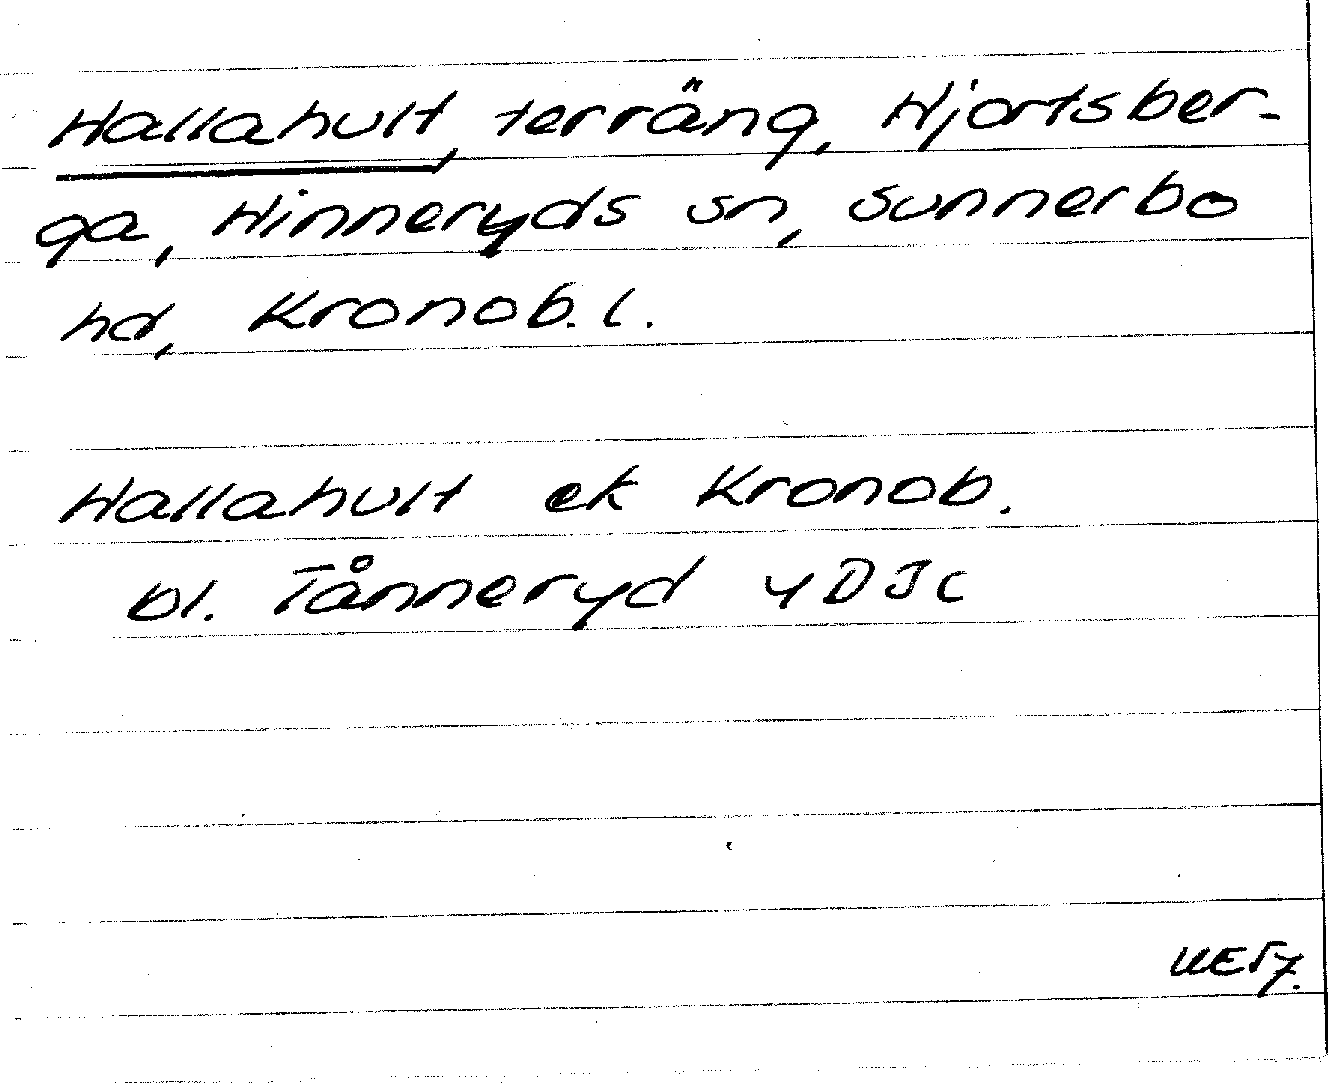 Hallahult, terräng, Hjortsber-
ga, Hinneryds sn, Sunnerbo
hd, Kronob. l.
Hallahult ek Kronob.
bl. Tånneryd 4D3c